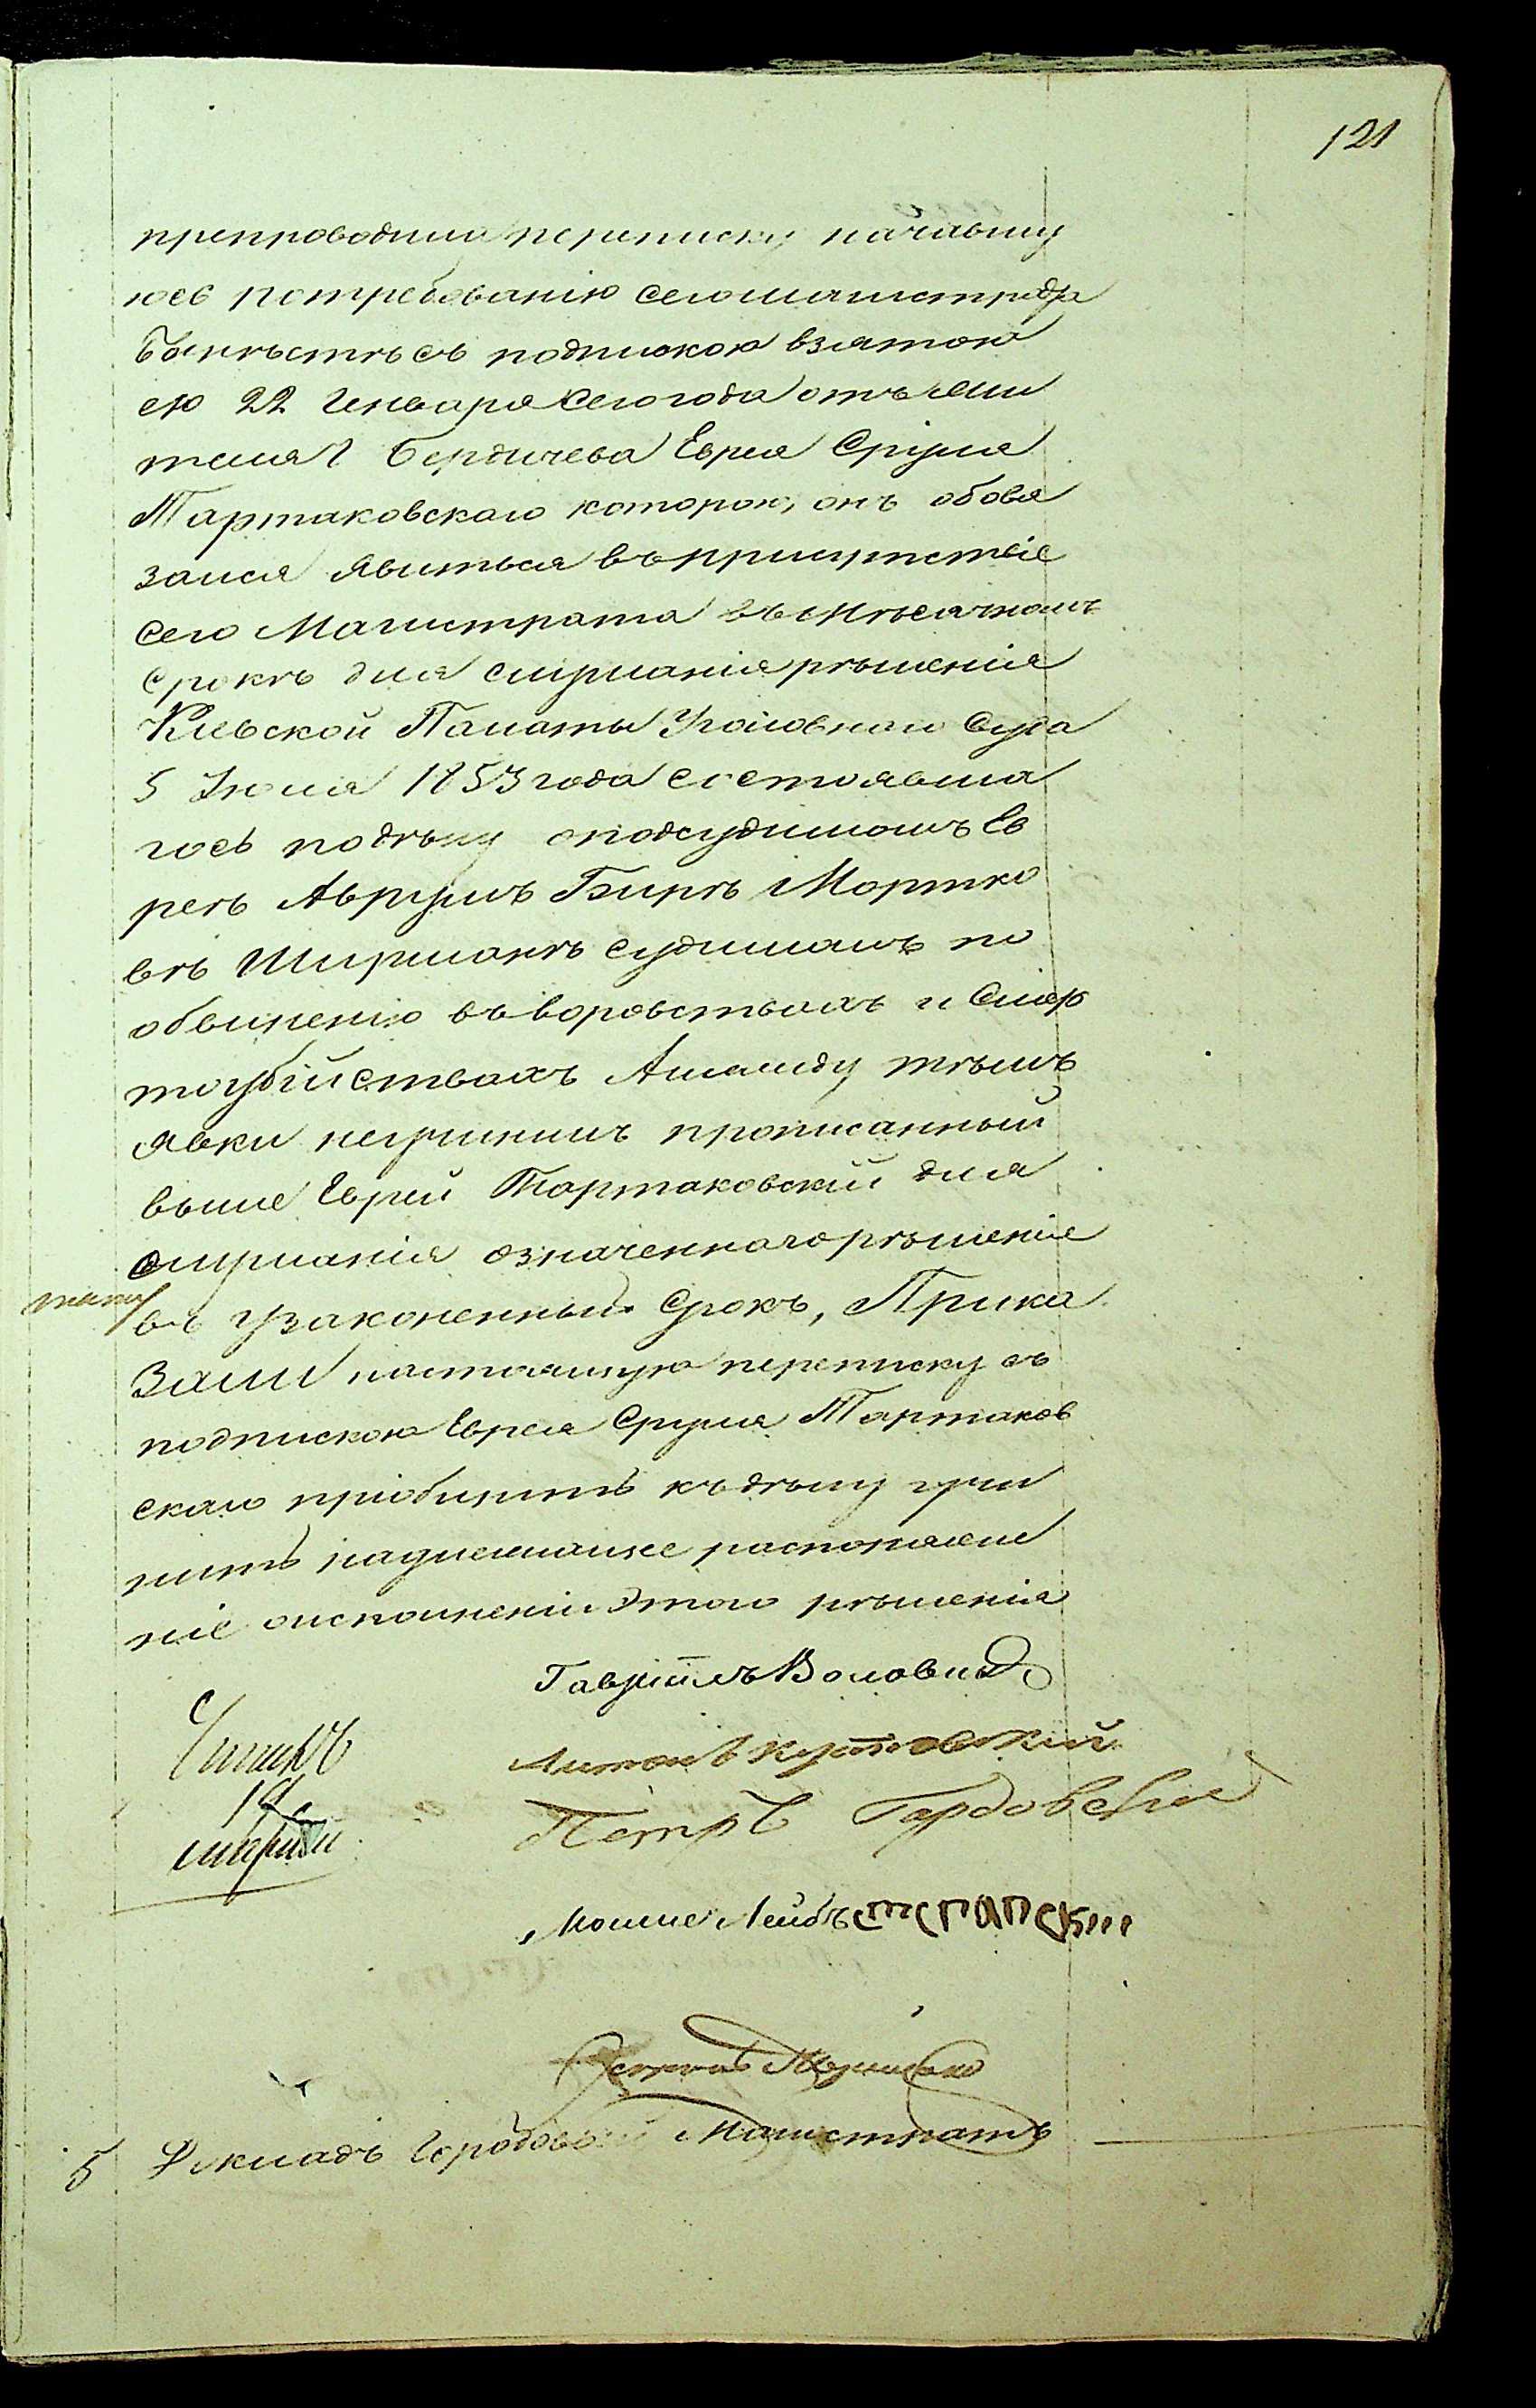 121
препроводила переписку начавшу
юсь потребованію сегомагистрата
вмѣстѣ съ подпискою взятою
ею 22 Генваря сего года отъ жи
теля г Бердичева Еврея Сруля
Тартаковскаго которою, онъ обовя
зался явиться въ присутствіе
сего Магистрата въ мѣсячномъ
срокѣ для слушанія рѣшенія
Кіевской Палаты Уголовнаго Суда
5 Іюля 1853 года состоявша
гось подѣлу оподсудимомъ Ев
реѣ Аврумъ Берѣ Мортко
вѣ Ширманѣ судимомъ по
обвиненію въ воровствахъ и Смер
тоубійствахъ Амежду тѣмъ
явки неучинилъ прописанный
выше Еврей Тартаковскій для
слушанія означенногорѣшенія
въ узаконенный срокъ, Прика
зали настоящую переписку съ
подпискою Еврея Сруля Тартаков
скаго пріобщить къ дѣлу учи
нить надлежащее распоряже
ніе оисполненіи этого рѣшенія
Гавріилъ Воловик
Антонъ
Петръ
Мошко Лейбъ
5 Докладъ Городовый Магистратъ